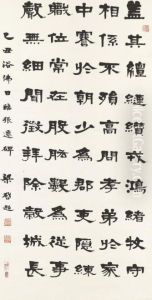 蓋其繵縺纘戎鴻緒牧守
相係不殞高問孝弟於家
中謇於朝少為郡吏隱練
職位常在股肱數為從事
聲無細聞徵拜除穀城長
乙丑浴佛日臨張遷碑 梁啟超